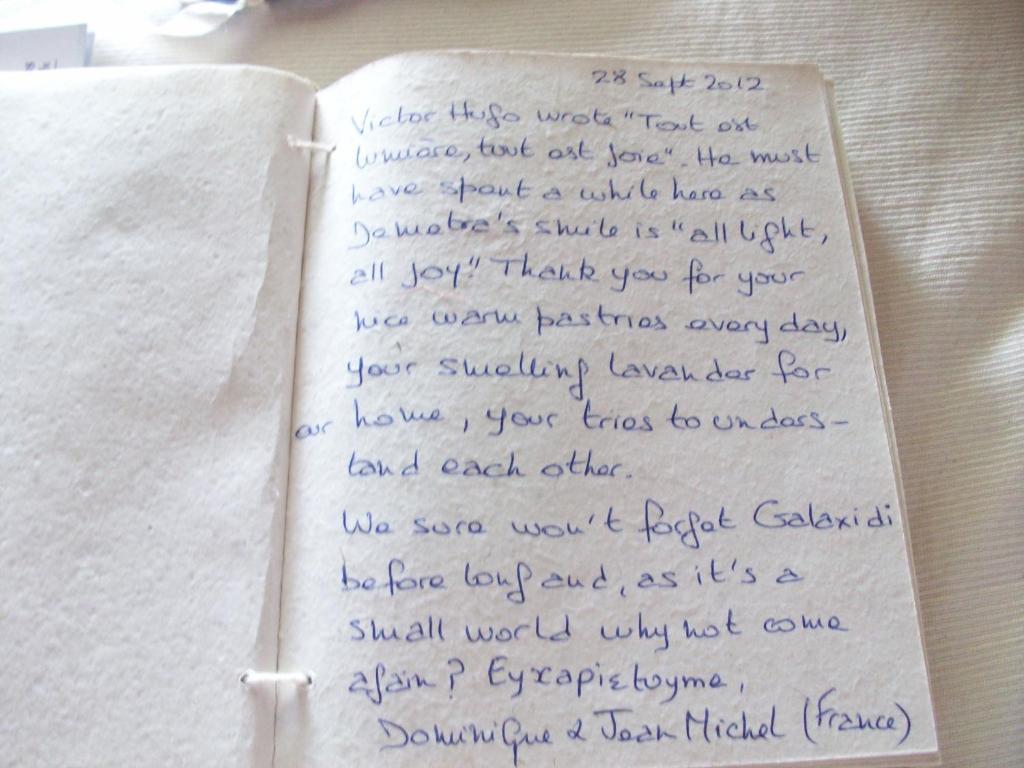 28 Sept 2012
Victor Hugo wrote "Tout est
lumière, tout est joie". He must
have spent a while here as
Demetra's smile is "all light,
all joy". Thank you for your
nice warm pastries every day,
your smelling lavender for
our home, your tries to unders-
tand each other.
We sure won't forget Galaxidi
before long and, as it's a
small world why not come
again? Eyxapistoyme,
Dominique & Jean Michel (France)